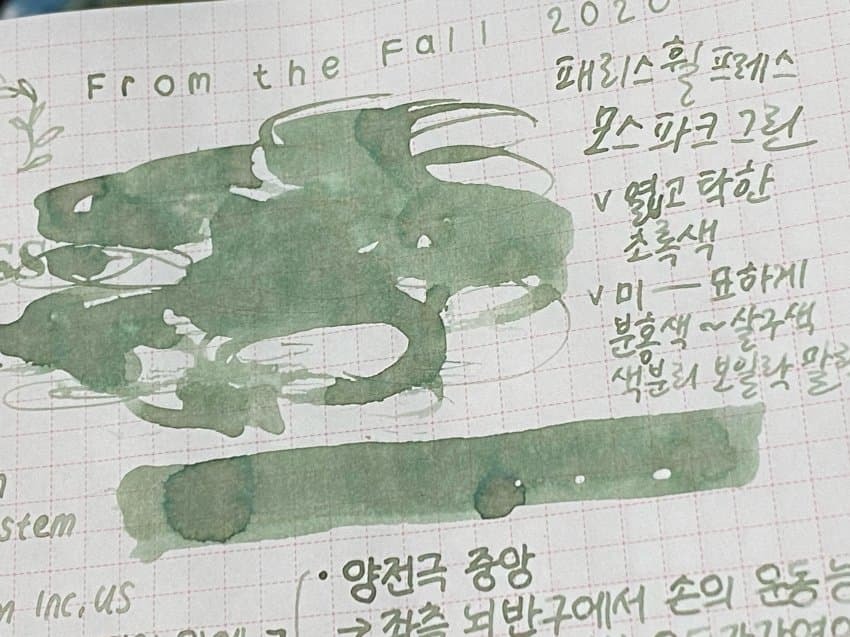 From the Fall 2020
패리스휠프레스
모스파크그린
v 옅고 탁한
초록색
v 미 — 묘하게
분홍색 ~ 살구색
색분리 보일락 말락
stem
Inc, US
• 양전극 중앙
→ 좌측 뇌반구에서 손의 운동능